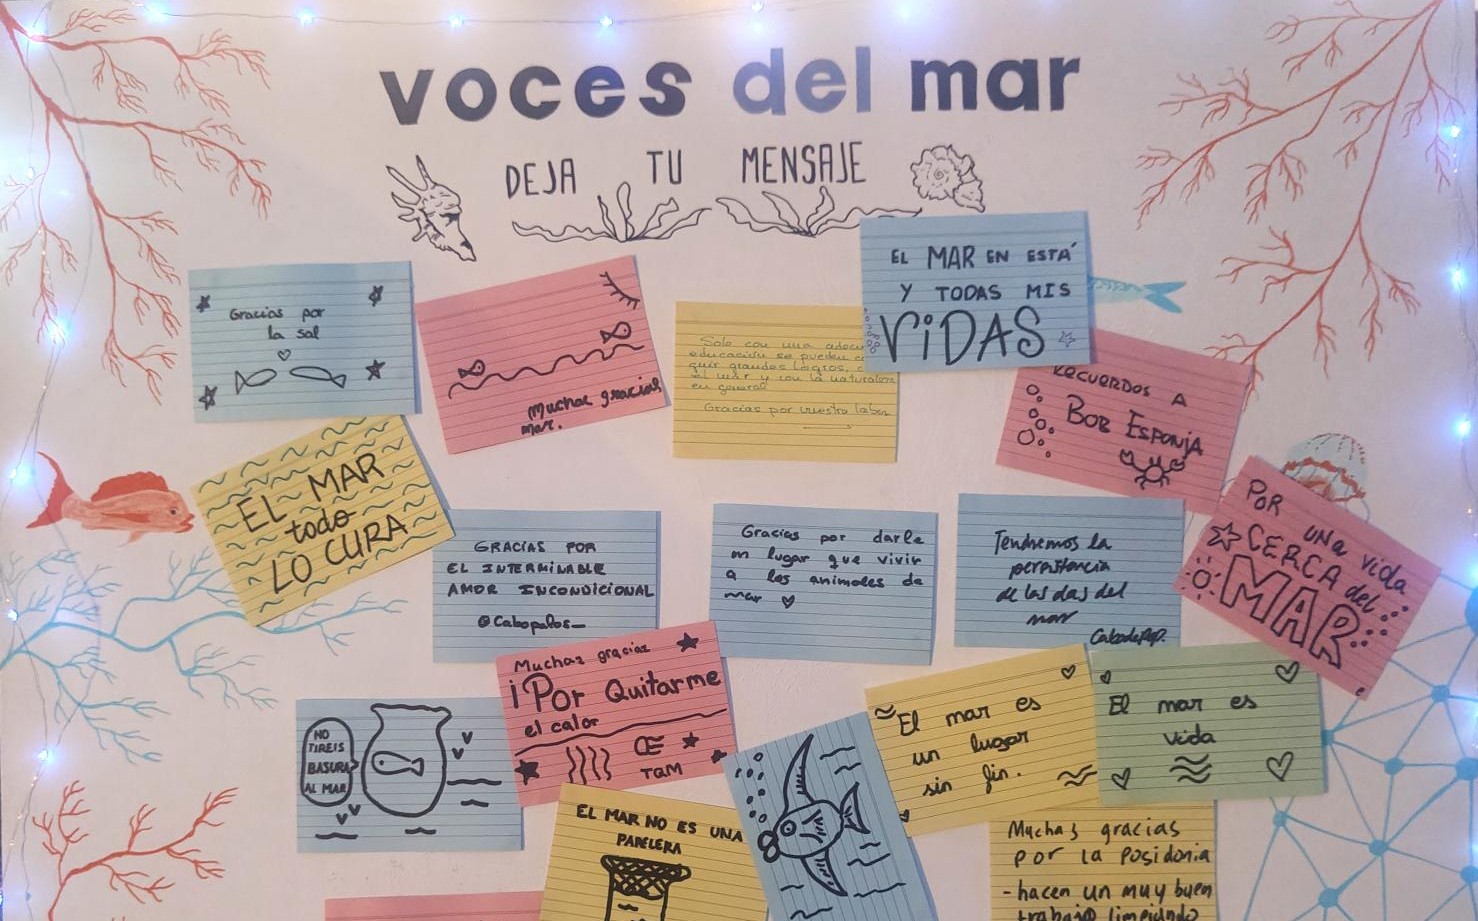 voces del mar
DEJA TU MENSAJE
Gracias por
la sal
Muchas gracias
mar.
Solo con una adecu
educación se pueden c
guir grandes logros, c
el mar y con la naturaleza
en general
Gracias por vuestra labor
EL MAR EN ESTÁ
Y TODAS MIS
ViDAS
RECUERDOS A
BOB ESPONJA
EL MAR
todo
LO CURA
GRACIAS POR
EL INTERMINABLE
AMOR INCONDICIONAL
@Cabopalos_
Gracias por darle
un lugar que vivir
a los animales de
mar
Tendremos la
persistencia
de las olas del
mar
POR UNa vida
CERCA del
MAR
NO
TIREIS
BASURA
AL MAR
Muchas gracias
¡Por Quitarme
el calor
TQM
El mar es
un lugar
sin fin.
El mar es
vida
EL MAR NO ES UNA
PAPELERA
Muchas gracias
por la posidonia
- hacen un muy buen
trabajo limpiando